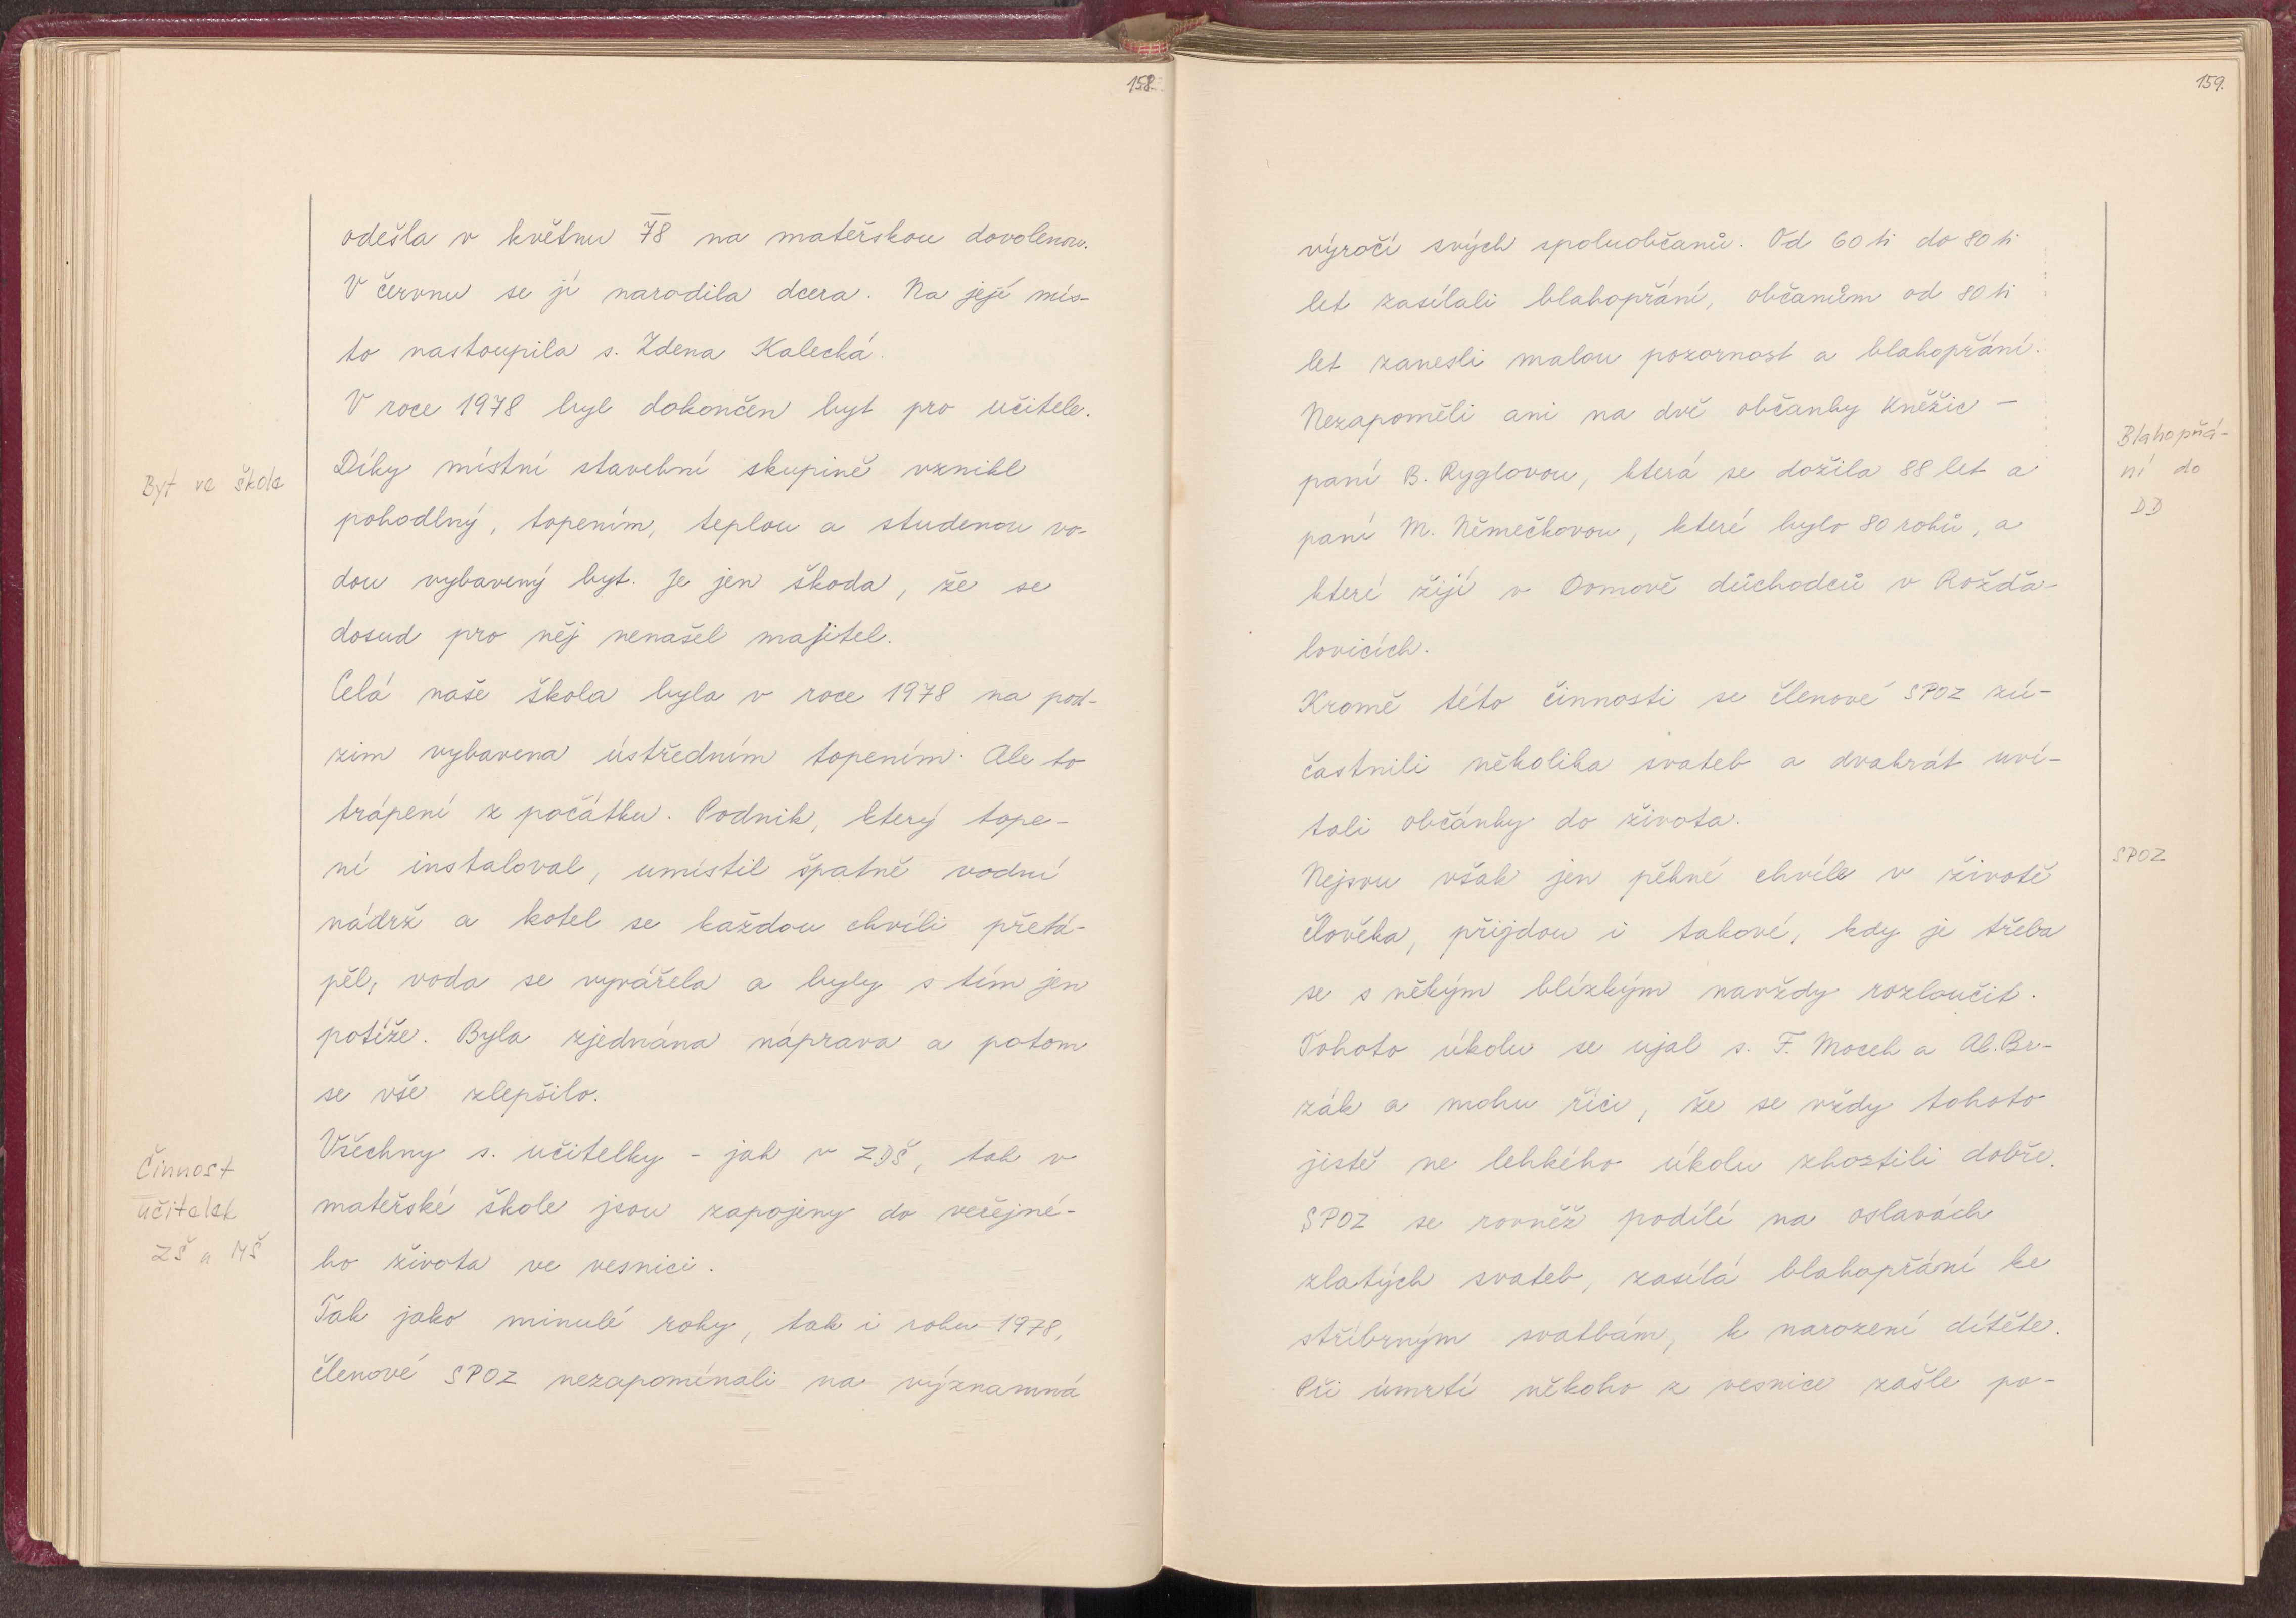 158.
odešla v květnu 78 na mateřskou dovolenou.
V červnu se jí narodila dcera. Na její mís-
to nastoupila s. Zdena Kalecká.
V roce 1978 byl dokončen byt pro učitele.
Byt ve škole
Díky místní stavební skupině vznikl
pohodlný, topením, teplou a studenou vo-
dou vybavený byt. Je jen škoda, že se
dosud pro něj nenašel majitel.
Celá naše škola byla v roce 1978 na pod-
zim vybavena ústředním topením. Ale to
trápení z počátku. Podnik, který tope-
ní instaloval, umístil špatně vodní
nádrž a kotel se každou chvíli přetá-
pěl, voda se vyvářela a byly s tím jen
potíže. Byla zjednána náprava a potom
se vše zlepšilo.
Činnost
učitelek
ZŠ a MŠ
Všechny s. učitelky - jak v ZDŠ, tak v
mateřské škole jsou zapojeny do veřejné-
ho života ve vesnici.
Tak jako minulé roky, tak i roku 1978,
členové SPOZ nezapomínali na významná
159.
výročí svých spoluobčanů. Od 60 ti do 80 ti
let zasílali blahopřání, občanům od 80 ti
let zanesli malou pozornost a blahopřání.
Nezapoměli ani na dvě občanky Kněžic -
Blahopřá-
ní do
DD
paní B. Ryglovou, která se dožila 88 let a
paní M. Němečkovou, které bylo 80 roků, a
které žijí v Domově důchodců v Rožďa-
lovicích.
Kromě této činnosti se členové SPOZ zú-
častnili několika svateb a dvakrát uví-
tali občánky do života.
SPOZ
Nejsou však jen pěkné chvíle v životě
člověka, přijdou i takové, kdy je třeba
se s někým blízkým navždy rozloučit.
Tohoto úkolu se ujal s. F. Mocek a Al. Br-
zák a mohu říci, že se vždy tohoto
jistě ne lehkého úkolu zhostili dobře.
SPOZ se rovněž podílí na oslavách
zlatých svateb, zasílá blahopřání ke
stříbrným svatbám, k narození dítěte.
Při úmrtí někoho z vesnice zašle po-